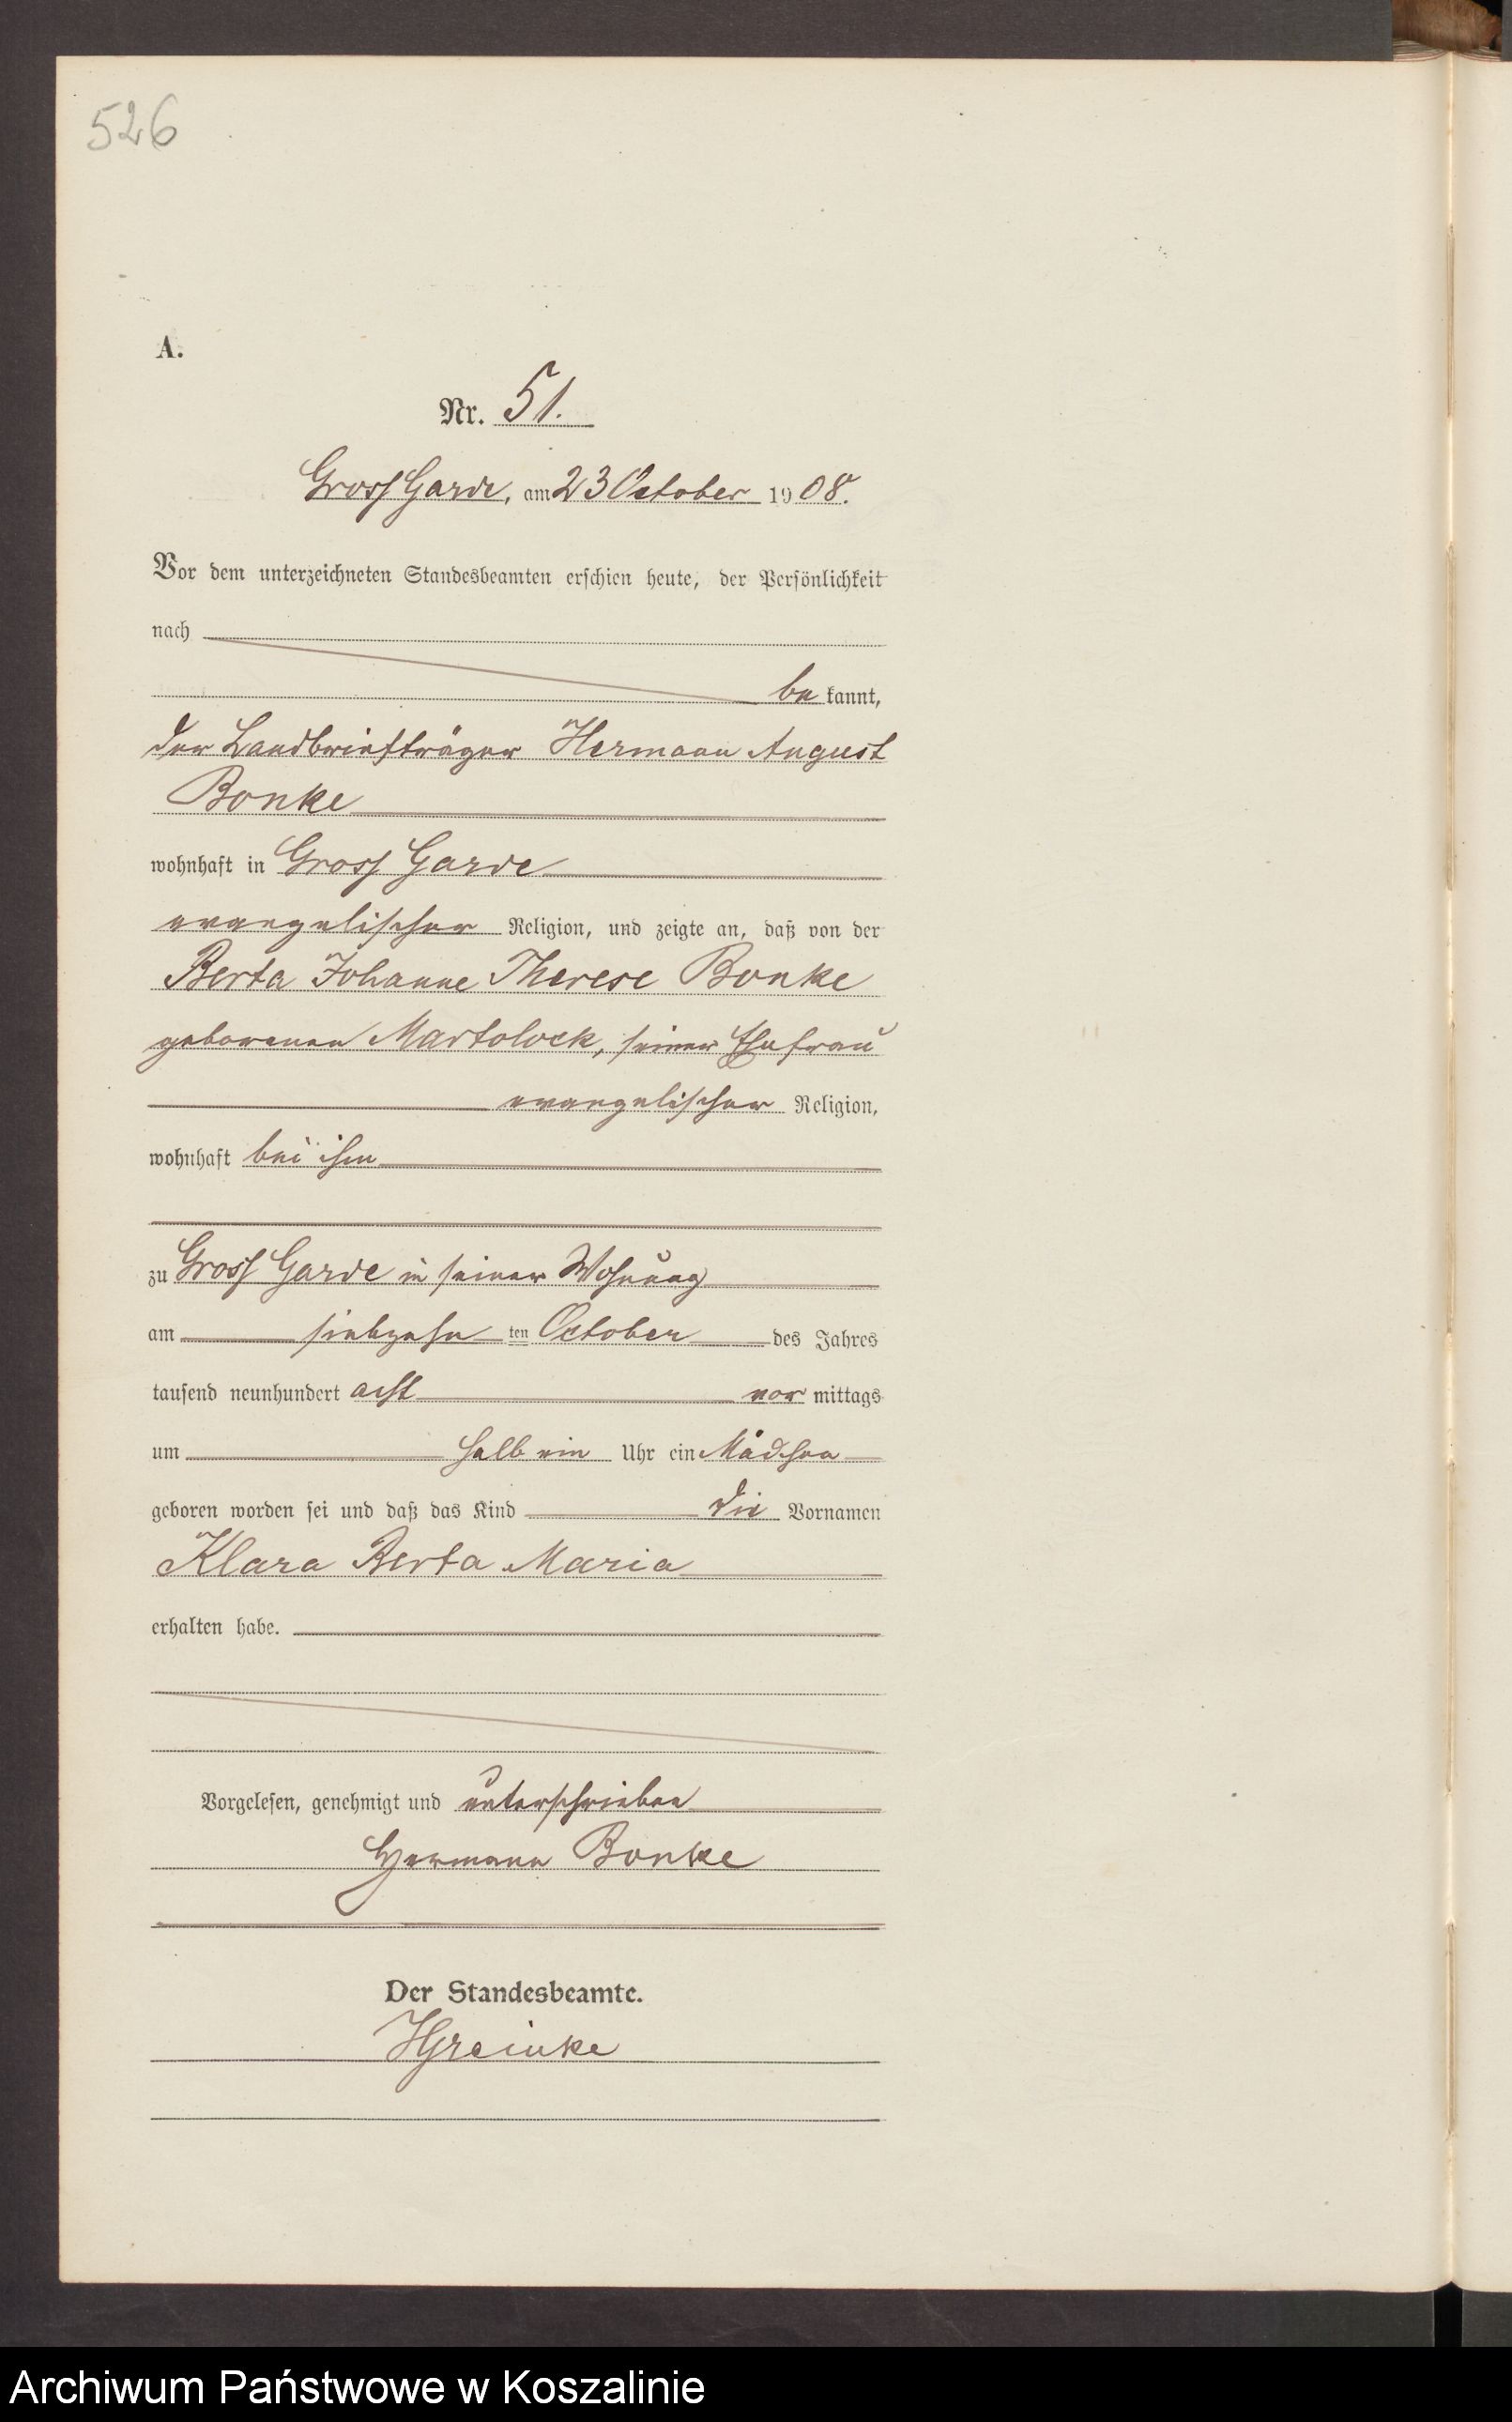 526
A.
Nr. 51.
Gross Garde, am 23 October 1908.
Vor dem unterzeichneten Standesbeamten erschien heute, der Persönlichkeit
nach
be kannt,
der Landbriefträger Hermann August
Bonke
wohnhaft in Gross Garde
evangelischer Religion, und zeigte an, daß von der
Berta Johanne Therese Bonke
geborenen Martolock, seiner Ehefrau
evangelischer Religion,
wohnhaft bei ihm
zu Gross Garde in seiner Wohnung
am siebzehn ten October des Jahres
tausend neunhundert acht vor mittags
um halb ein Uhr ein Mädchen
geboren worden sei und daß das Kind die Vornamen
Klara Berta Maria
erhalten habe.
Vorgelesen, genehmigt und unterschrieben
Hermann Bonke
Der Standesbeamte.
HGreinke
Archiwum Państwowe w Koszalinie